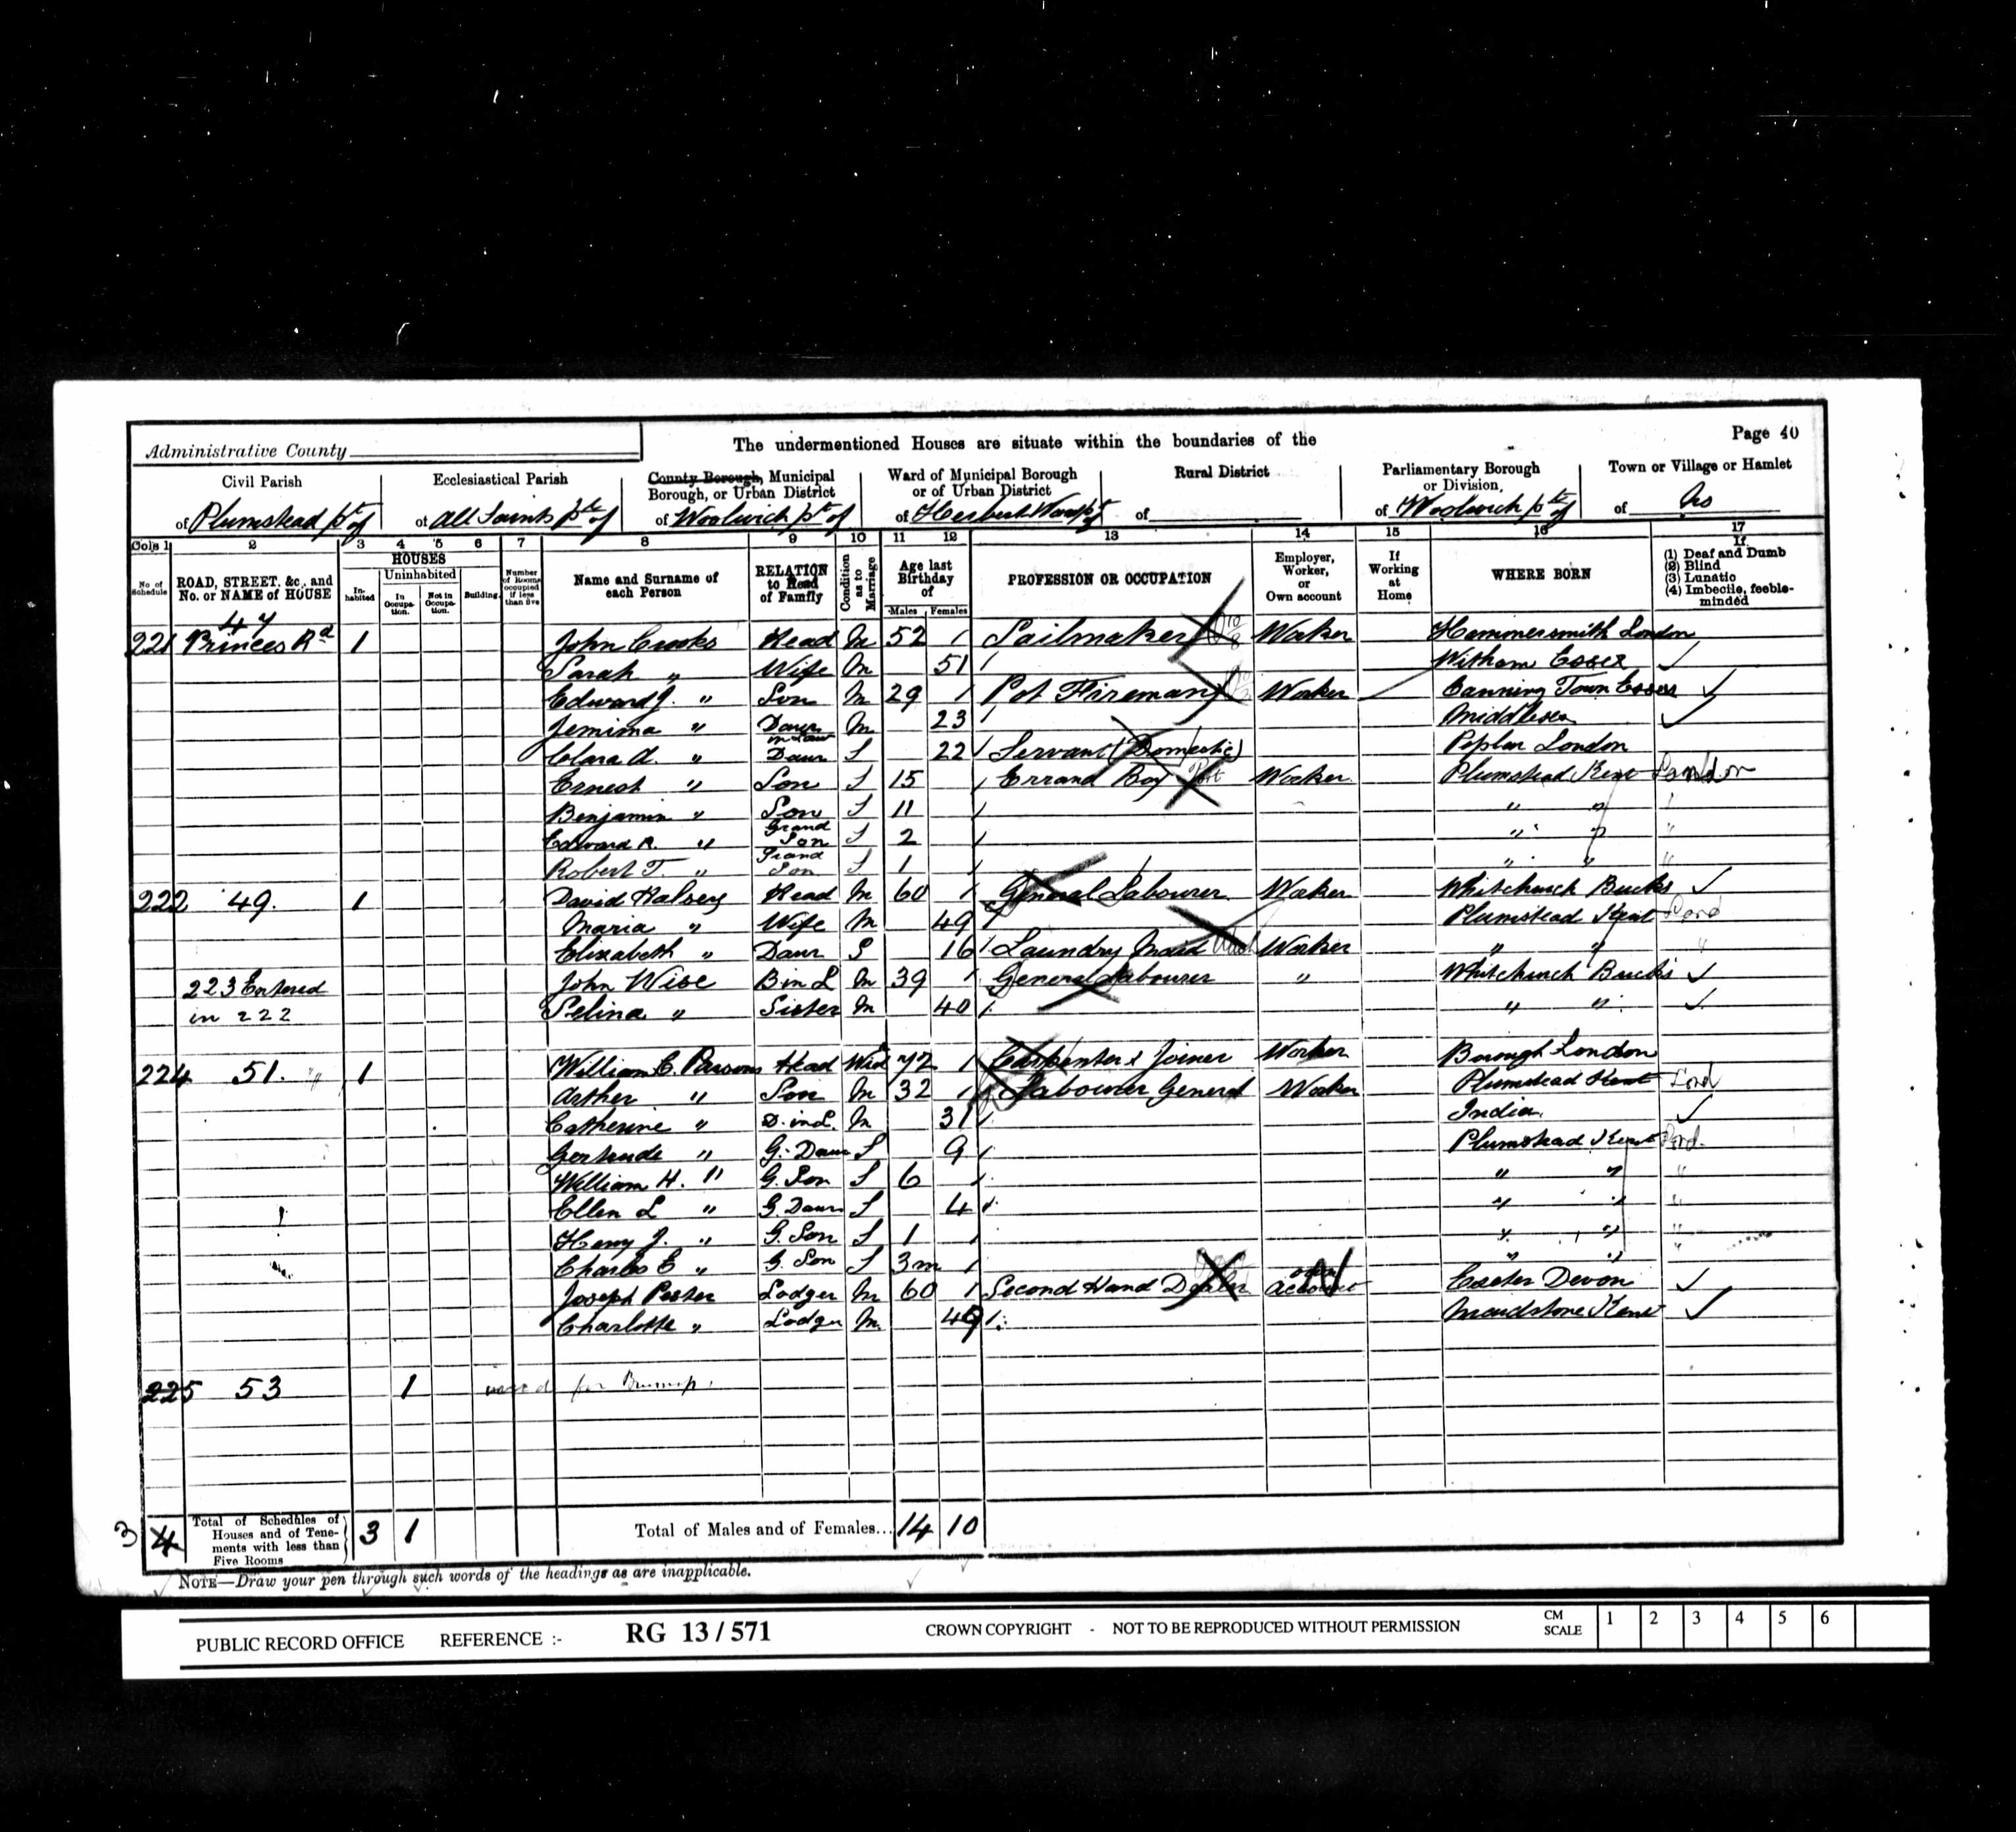 Page 40
Administrative County
The undermentioned Houses are situate within the boundaries of the
Civil Parish
of Plumstead pt of
Ecclesiastical Parish
of All Saints pt of
County Borough, Municipal
Borough, or Urban District
of Woolwich pt of
Ward of Municipal Borough
or of Urban District
of Herbert Ward pt of
Rural District
of
Parliamentary Borough
or Division,
of Woolwich pt of
Town or Village or Hamlet
of
Cols 1 2 3 4 5 6 7 8 9 10 11 12 13 14 15 16 17
No. of Schedule
ROAD, STREET, &c., and
No. or NAME of HOUSE
HOUSES
In-habited
Uninhabited
In Occupa-tion.
Not in Occupa-tion.
Building.
Number of Rooms occupied if less than five
Name and Surname of
each Person
RELATION
to Head
of Family
Condition as to Marriage
Age last
Birthday
of
Males Females
PROFESSION OR OCCUPATION
Employer,
Worker,
or
Own account
If
Working
at
Home
WHERE BORN
If
(1) Deaf and Dumb
(2) Blind
(3) Lunatic
(4) Imbecile, feeble-
minded
47
221 Princes Rd 1 John Crooks Head M 52 Sailmaker Worker Hammersmith London
Sarah " Wife M 51 Witham Essex
Edward J. " Son M 29 Pot Fireman Worker Canning Town Essex
Jemima " Daur in Law M 23 Middlesex
Clara A. " Daur S 22 Servant (Domestic) Poplar London
Ernest " Son S 15 Errand Boy Port Worker Plumstead Kent London
Benjamin " Son S 11 " "
Edward R. " Grand Son S 2 " " "
Robert T. " Grand Son S 1 " " "
222 49. 1 David Halsey Head M 60 General Labourer Worker Whitchurch Bucks
Maria " Wife M 49 Plumstead Kent Lond
Elizabeth " Daur S 16 Laundry Maid Wash Worker " " "
223 Entered John Wise B in L M 39 General Labourer " Whitchurch Bucks
in 222 Selina " Sister M 40 " "
224 51. " 1 William C. Parsons Head Widr 72 Carpenter & Joiner Worker Borough London
Arther " Son M 32 Labourer General Worker Plumstead Kent Lond
Catherine " D. in L. M 31 India
Gertrude " G. Daur S 9 Plumstead Kent Lond.
William H. " G. Son S 6 " " "
Ellen L " G. Daur S 4 " " "
Harry J. " G. Son S 1 " " "
Charles E " G. Son S 3m " " "
Joseph Pester Lodger M 60 Second Hand Dealer own account Exeter Devon
Charlotte " Lodger M 49 Maidstone Kent
225 53 1 for
3 4 Total of Schedules of
Houses and of Tene-
ments with less than
Five Rooms 3 1 Total of Males and of Females... 14 10
NOTE—Draw your pen through such words of the headings as are inapplicable.
PUBLIC RECORD OFFICE REFERENCE :- RG 13 / 571 CROWN COPYRIGHT - NOT TO BE REPRODUCED WITHOUT PERMISSION CM SCALE 1 2 3 4 5 6